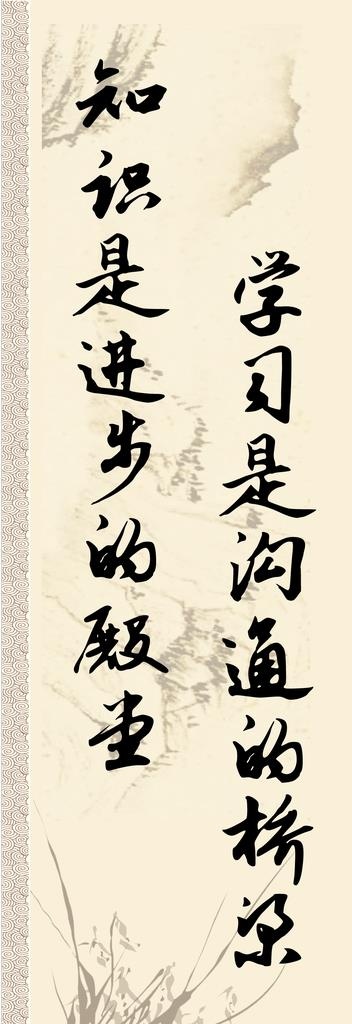 知识是进步的殿堂
学习是沟通的桥梁